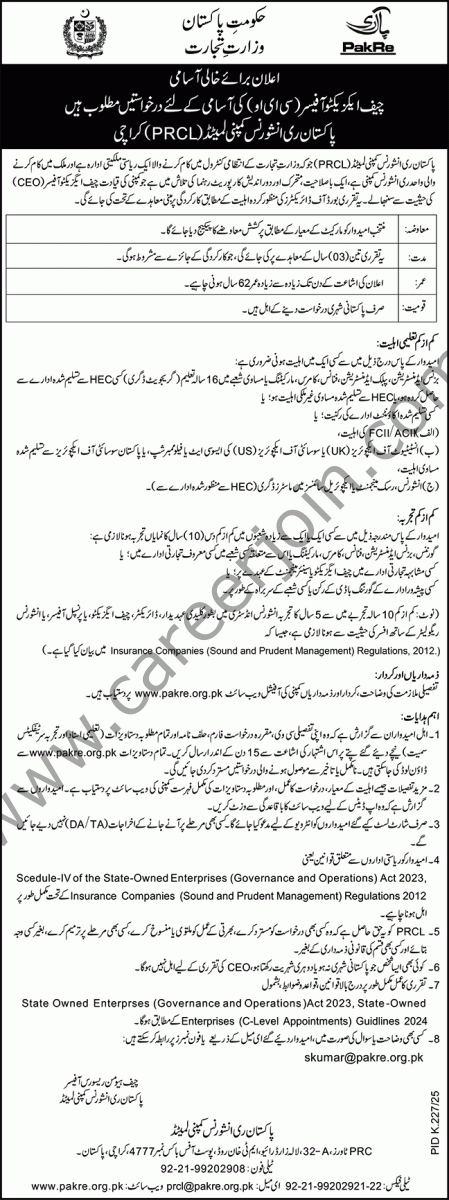 حکومتِ پاکستان
وزارتِ تجارت
PakRe
اعلان برائے خالی آسامی
چیف ایگزیکٹو آفیسر (سی ای او) کی آسامی کے لئے درخواستیں مطلوب ہیں
پاکستان ری انشورنس کمپنی لمیٹڈ (PRCL) کراچی
پاکستان ری انشورنس کمپنی لمیٹڈ (PRCL) جو کہ وزارت تجارت کے انتظامی کنٹرول میں کام کرنے والا ایک ریاستی ملکیتی ادارہ ہے اور ملک میں کام کرنے
والی واحد ری انشورنس کمپنی ہے، ایک باصلاحیت، متحرک اور دور اندیش کارپوریٹ رہنما کی تلاش میں ہے جو کمپنی کی قیادت چیف ایگزیکٹو آفیسر (CEO)
کی حیثیت سے سنبھالے۔ یہ تقرری بورڈ آف ڈائریکٹرز کی منظور کردہ اہلیت کے مطابق کارکردگی پر مبنی معاہدے کے تحت کی جائے گی۔
معاوضہ: منتخب امیدوار کو مارکیٹ کے معیار کے مطابق پرکشش معاوضے کا پیکیج دیا جائے گا۔
مدت: یہ تقرری تین (03) سال کے معاہدے پر کی جائے گی، جو کارکردگی کے جائزے سے مشروط ہوگی۔
عمر: اعلان کی اشاعت کے دن تک زیادہ سے زیادہ عمر 62 سال ہونی چاہیے۔
قومیت: صرف پاکستانی شہری درخواست دینے کے اہل ہیں۔
کم از کم تعلیمی اہلیت:
امیدوار کے پاس درج ذیل میں سے کسی ایک میں اہلیت ہونی ضروری ہے:
بزنس ایڈمنسٹریشن، پبلک ایڈمنسٹریشن، فنانس، کامرس، مارکیٹنگ یا مساوی شعبے میں 16 سالہ تعلیم (گریجویٹ ڈگری) کسی HEC سے تسلیم شدہ ادارے سے
حاصل کردہ ہو، یا HEC سے تسلیم شدہ مساوی غیر ملکی اہلیت ہو؛ یا
کسی تسلیم شدہ اکاؤنٹنٹ ادارے کی رکنیت؛ یا
(الف) FCII/ACIK کی اہلیت،
(ب) انسٹیٹیوٹ آف ایکچوئریز (UK) یا سوسائٹی آف ایکچوئریز (US) کی ایسوسی ایٹ یا فیلو ممبرشپ، یا پاکستان سوسائٹی آف ایکچوئریز سے تسلیم شدہ
مساوی اہلیت،
(ج) انشورنس، رسک مینجمنٹ یا ایکچوئریل سائنسز میں ماسٹرز ڈگری (HEC سے منظور شدہ ادارے سے)۔
کم از کم تجربہ:
امیدوار کے پاس مندرجہ ذیل میں سے کسی ایک یا ایک سے زیادہ شعبوں میں کم از کم دس (10) سال کا نمایاں تجربہ ہونا لازمی ہے:
گورننس، بزنس ایڈمنسٹریشن، فنانس، کامرس، مارکیٹنگ یا اس سے متعلقہ کسی شعبے میں کسی معروف تجارتی ادارے میں؛ یا
کسی مشابہہ تجارتی ادارے میں چیف ایگزیکٹو یا سینئر مینجمنٹ کے عہدے پر؛ یا
کسی پیشہ ور ادارے کے گورننگ باڈی کے رکن یا کسی شعبے کے سربراہ کے طور پر۔
(نوٹ: کم از کم 10 سالہ تجربے میں سے 5 سال کا تجربہ انشورنس انڈسٹری میں بطور کلیدی عہدیدار، ڈائریکٹر، چیف ایگزیکٹو، یا پرنسپل آفیسر، یا انشورنس
ریگولیٹر کے ساتھ افسر کی حیثیت سے ہونا لازمی ہے، جیسا کہ
Insurance Companies (Sound and Prudent Management) Regulations, 2012.) میں بیان کیا گیا ہے)۔
ذمہ داریاں اور کردار:
تفصیلی ملازمت کی وضاحت، کردار اور ذمہ داریاں کمپنی کی آفیشل ویب سائٹ www.pakre.org.pk پر دستیاب ہیں۔
اہم ہدایات:
1۔ اہل امیدواران سے گزارش ہے کہ وہ اپنی تفصیلی سی وی، مقررہ درخواست فارم، حلف نامہ اور تمام مطلوبہ دستاویزات (تعلیمی اسناد اور تجربہ سرٹیفکیٹس
سمیت) نیچے دیئے گئے پتے پر اس اشتہار کی اشاعت سے 15 دن کے اندر ارسال کریں۔ تمام دستاویزات www.pakre.org.pk سے
ڈاؤن لوڈ کی جاسکتی ہیں۔ نامکمل یا تاخیر سے موصول ہونے والی درخواستیں مسترد کر دی جائیں گی۔
2۔ مزید تفصیلات جیسے اہلیت کے معیار، درخواست کا عمل، اور مطلوبہ دستاویزات کی مکمل فہرست کمپنی کی ویب سائٹ پر دستیاب ہے۔ امیدواروں سے
گزارش ہے کہ وہ اپ ڈیٹس کے لیے ویب سائٹ کا باقاعدگی سے وزٹ کریں۔
3۔ صرف شارٹ لسٹ کیے گئے امیدواروں کو انٹرویو کے لیے مدعو کیا جائے گا۔ کسی بھی مرحلے پر آنے جانے کے اخراجات (DA/TA) نہیں دیے جائیں
گے۔
4۔ امیدوار کو ریاستی اداروں سے متعلق قوانین یعنی
Scedule-IV of the State-Owned Enterprises (Governance and Operations) Act 2023,
Insurance Companies (Sound and Prudent Management) Regulations 2012 کے تحت مکمل طور پر
اہل ہونا چاہیے۔
5۔ PRCL کو یہ حق حاصل ہے کہ وہ کسی بھی درخواست کو مسترد کرے، بھرتی کے عمل کو ملتوی یا منسوخ کرے، کسی بھی مرحلے پر ترمیم کرے، بغیر کسی وجہ
بتائے اور کسی بھی قسم کی قانونی ذمہ داری کے بغیر۔
6۔ کوئی بھی ایسا شخص جو پاکستانی شہری نہ ہو یا دوہری شہریت رکھتا ہو، CEO کی تقرری کے لیے اہل نہیں ہوگا۔
7۔ تقرری کا عمل مکمل طور پر درج بالا قوانین، قواعد و ضوابط بشمول
State Owned Enterprses (Governance and Operations)Act 2023, State-Owned
Enterprises (C-Level Appointments) Guidlines 2024 کے مطابق ہوگا۔
8۔ کسی بھی وضاحت یا سوال کی صورت میں، امیدوار دیئے گئے ای میل کے ذریعے یا فون نمبرز پر رابطہ کر سکتے ہیں:
skumar@pakre.org.pk
چیف ہیومن ریسورس آفیسر
پاکستان ری انشورنس کمپنی لمیٹڈ
پاکستان ری انشورنس کمپنی لمیٹڈ
PRC ٹاورز، 32-A، لالہ زار ڈرائیو، ایم ٹی خان روڈ، پوسٹ آفس باکس نمبر 4777 کراچی، پاکستان۔
ٹیلی فون: 92-21-99202908
ٹیلی فیکس: 92-21-99202921-22 ای میل: prcl@pakre.org.pk ویب سائٹ: www.pakre.org.pk
PID K.227/25
www.careerjoin.com